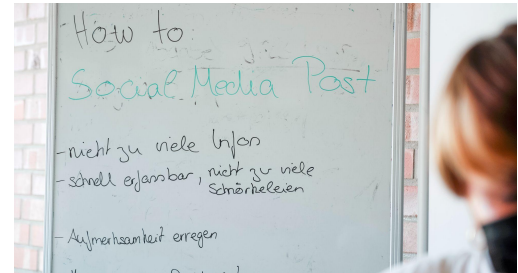 How to:
Social Media Post
- nicht zu viele Infos
- schnell erfassbar, nicht zu viele
Schnörkeleien
- Aufmerksamkeit erregen